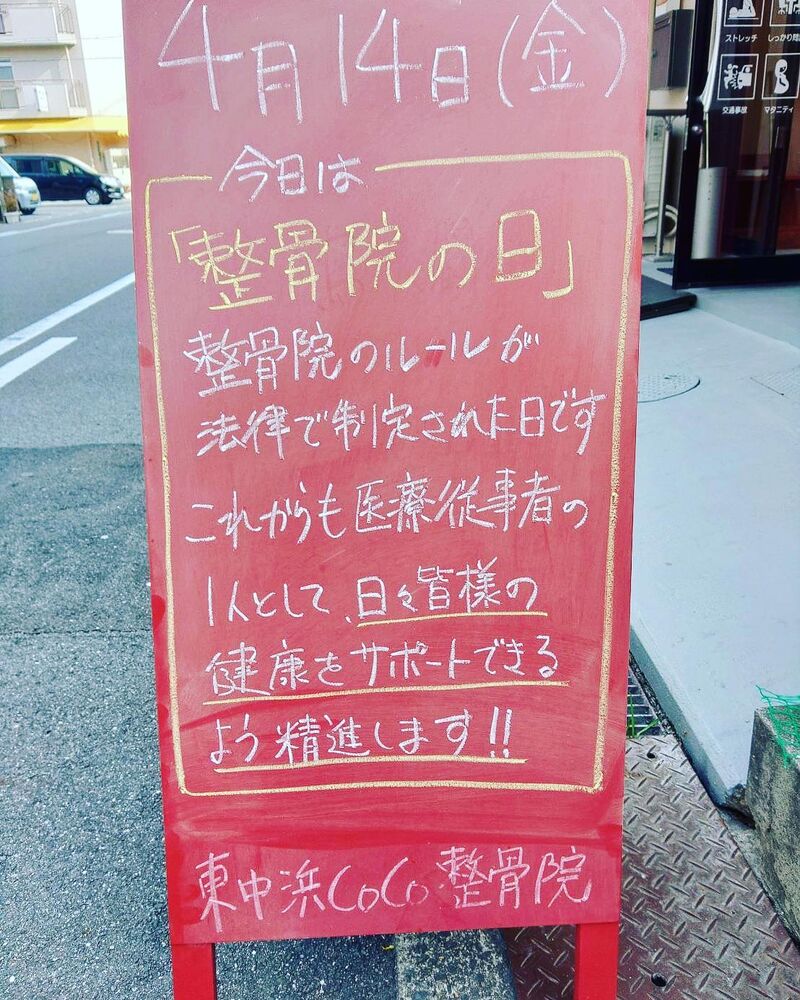 4月14日(金)
今日は
「整骨院の日」
整骨院のルールが
法律で制定された日です
これからも医療従事者の
1人として、日々皆様の
健康をサポートできる
よう精進します!!
東中浜CoCo整骨院
ストレッチ
交通事故
マタニティ